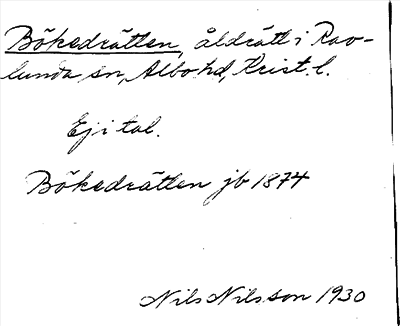 Bökedrätten, åldrätt i Rav-
lunda sn, Albo hd, Krist. l.
Ej i tal.
Bökedrätten jb 1874
Nils Nilsson 1930